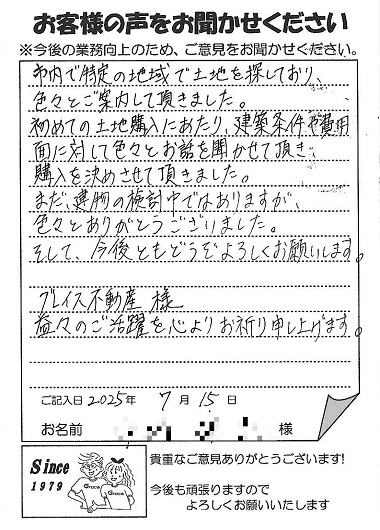 お客様の声をお聞かせください
※今後の業務向上のため、ご意見をお聞かせください。
市内で特定の地域で土地を探しており、
色々とご案内して頂きました。
初めての土地購入にあたり、建築条件や費用
面に対して色々とお話を聞かせて頂き、
購入を決めさせて頂きました。
まだ、建物の検討中ではありますが、
色々とありがとうございました。
そして、今後ともどうぞよろしくお願いします。
グレイス不動産 様
益々のご活躍を心よりお祈り申し上げます。
ご記入日 2025年 7月 15日
お名前 様
Since
1979
Grace
Grace
貴重なご意見ありがとうございます!
今後も頑張りますので
よろしくお願いいたします